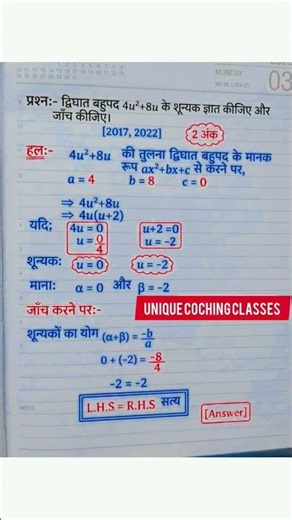 MONDAY
03
प्रश्न:- द्विघात बहुपद 4u²+8u के शून्यक ज्ञात कीजिए और
जाँच कीजिए।
[2017, 2022] 2 अंक
हल:- 4u²+8u की तुलना द्विघात बहुपद के मानक
रूप ax²+bx+c से करने पर,
a = 4 b = 8 c = 0
⇒ 4u²+8u
⇒ 4u(u+2)
यदि; 4u = 0 u+2 =0
u = 0/4 u = -2
शून्यक: u = 0 u = -2
माना: α = 0 और β = -2
जाँच करने पर:- UNIQUE COCHING CLASSES
शून्यकों का योग (α+β) = -b/a
0 + (-2) = -8/4
-2 = -2
L.H.S = R.H.S सत्य [Answer]